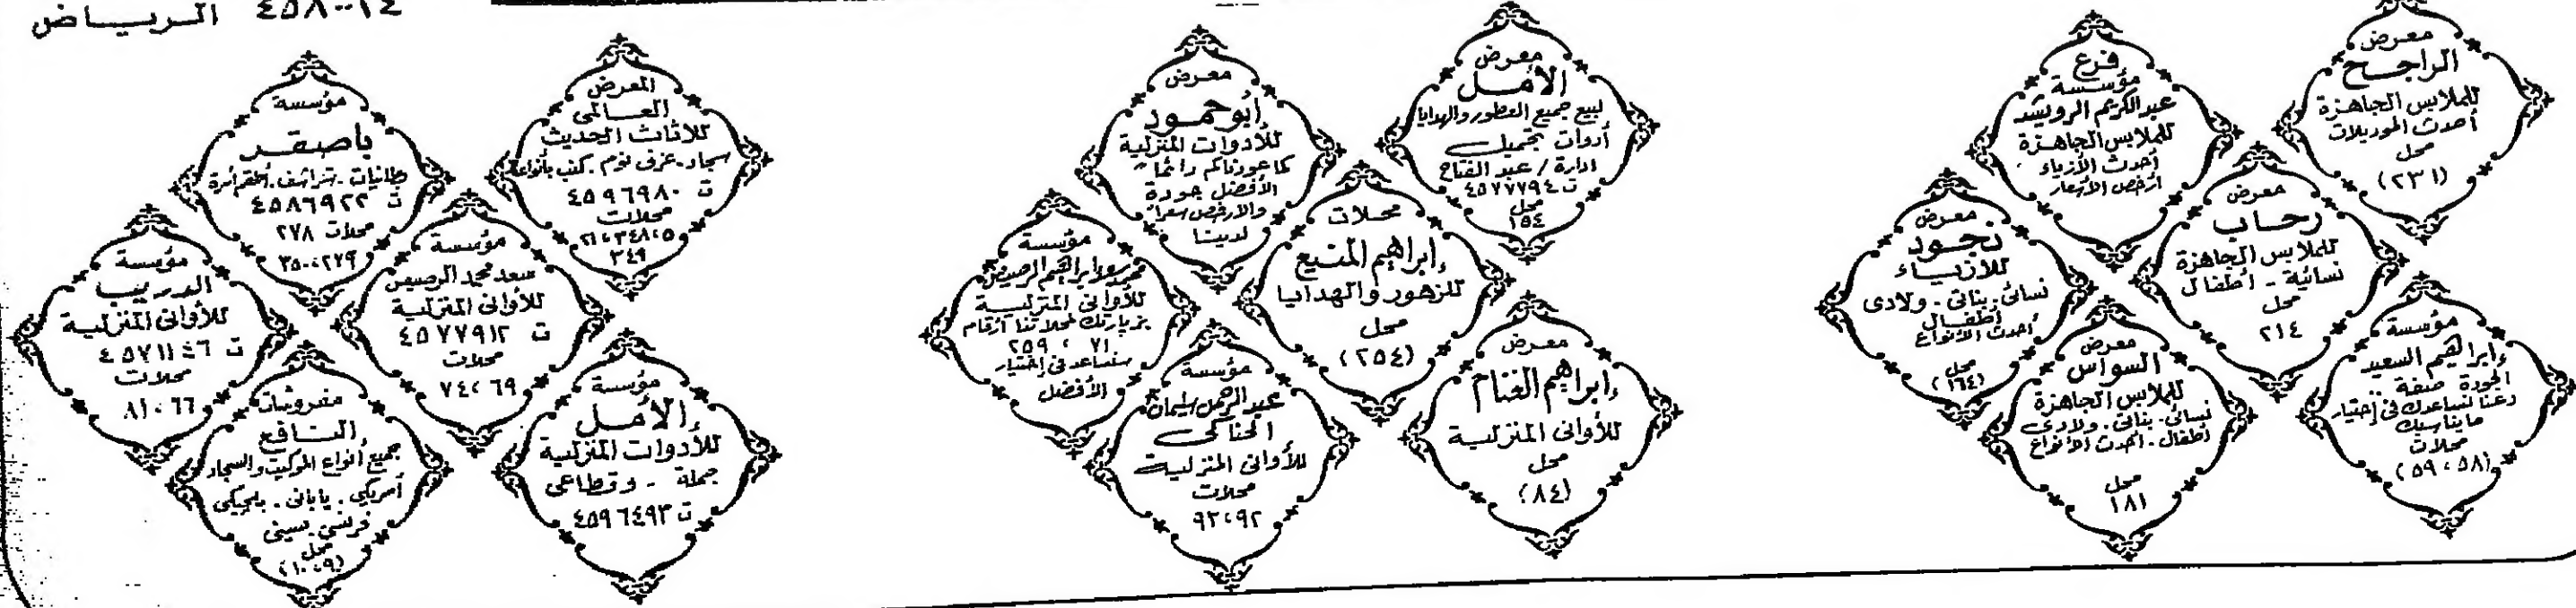 ٤٥٨٠٠١٤ الرياض
معرض
الراجح
للملابس الجاهزة
أحدث الموديلات
محل
(٢٣١)
فرع
مؤسسة
عبدالكريم الرويشد
للملابس الجاهزة
أحدث الأزياء
أرخص الأسعار
معرض
رحاب
للملابس الجاهزة
نسائية - أطفال
محل
٢١٤
معرض
نجود
للأزياء
نسائى . بناتى . ولادى
أطفال
أحدث الأنواع
محل
(١٦٤)
مؤسسة
إبراهيم السعيد
الجودة صفة
دعنا نساعدك فى إختيار
ما يناسبك
محلات
(٥٨ ، ٥٩)
معرض
السواس
للملابس الجاهزة
نسائى . بناتى . ولادى
أطفال . أحدث الأنواع
محل
١٨١
معرض
الأمل
لبيع جميع العطور والهدايا
أدوات تجميل
ادارة / عبد الفتاح
ت ٤٥٧٧٧٩٤
محل
١٥٤
معرض
أبو حمود
للأدوات المنزلية
كما عودناكم دائماً
الأفضل جودة
والأرخص سعراً
لدينا
محلات
إبراهيم المنيع
للزهور والهدايا
محل
(٢٥٤)
مؤسسة
إبراهيم الرصيص
للأوانى المنزلية
بزيارتك لمحلاتنا أرقام
٧١ ، ٢٥٩
سنساعد فى إختيار
الأفضل
معرض
إبراهيم الغنام
للأوانى المنزلية
محل
(٨٤)
مؤسسة
عبد الرحمن سليمان
الحناكى
للأوانى المنزلية
محلات
٩٢،٩٢
المعرض
العالمى
للأثاث الحديث
سجاد . غرف نوم . كنب بأنواعه
ت ٤٥٩٦٩٨٠
محلات
٣٤٩
مؤسسة
باصقر
بطانيات . شراشف . أطقم أسرة
ت ٤٥٨٦٩٢٢
محلات ٢٧٨
٣٥٠،٢٧٩
مؤسسة
سعد محمد الرصيص
للأوانى المنزلية
ت ٤٥٧٧٩١٢
محلات
٧٤،٦٩
مؤسسة
الدريب
للأوانى المنزلية
ت ٤٥٧١١٤٦
محلات
٨١،٦٦
مؤسسة
الأمل
للأدوات المنزلية
جملة - وقطاعى
ت ٤٥٩٦٤٩٣
مفروشات
النافع
جميع أنواع الموكيت والسجاد
أمريكى . يابانى . بلجيكى
فرنسى . صينى
محل
(١٠،٩)